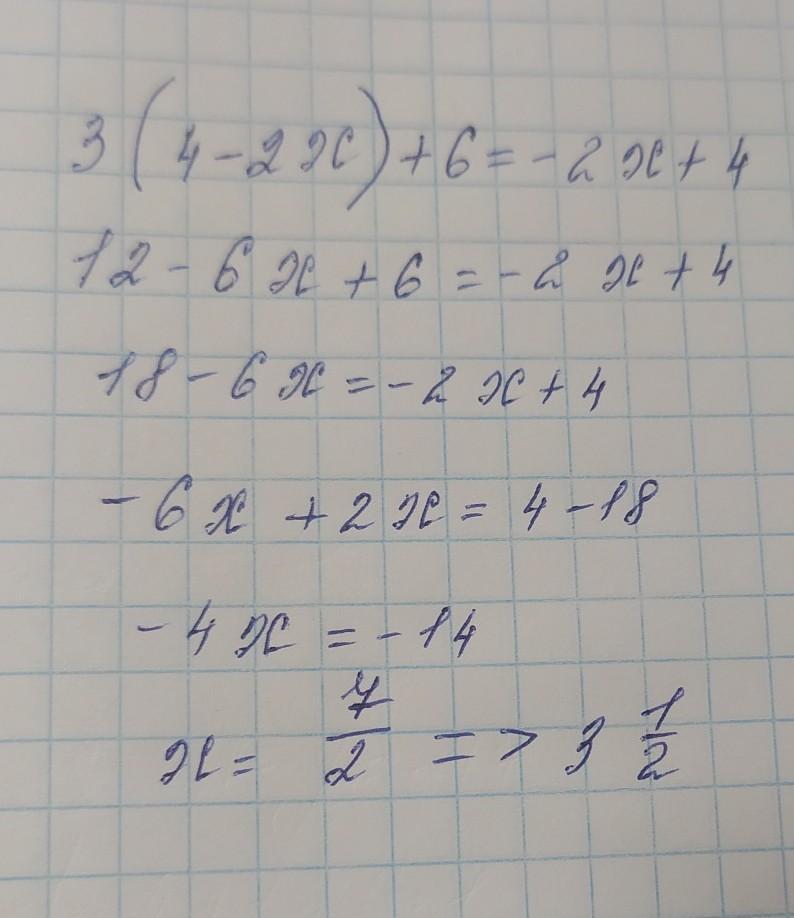 3(4-2x)+6=-2x+4
12-6x+6=-2x+4
18-6x=-2x+4
-6x+2x=4-18
-4x=-14
x=7/2 => 3 1/2